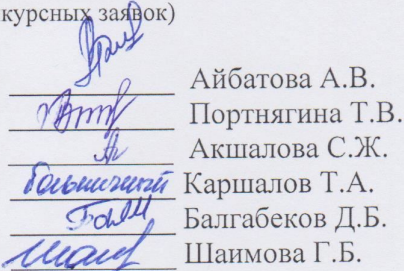 курсных заявок)
Айбатова А.В.
Портнягина Т.В.
Акшалова С.Ж.
больничный Каршалов Т.А.
Балгабеков Д.Б.
Шаимова Г.Б.